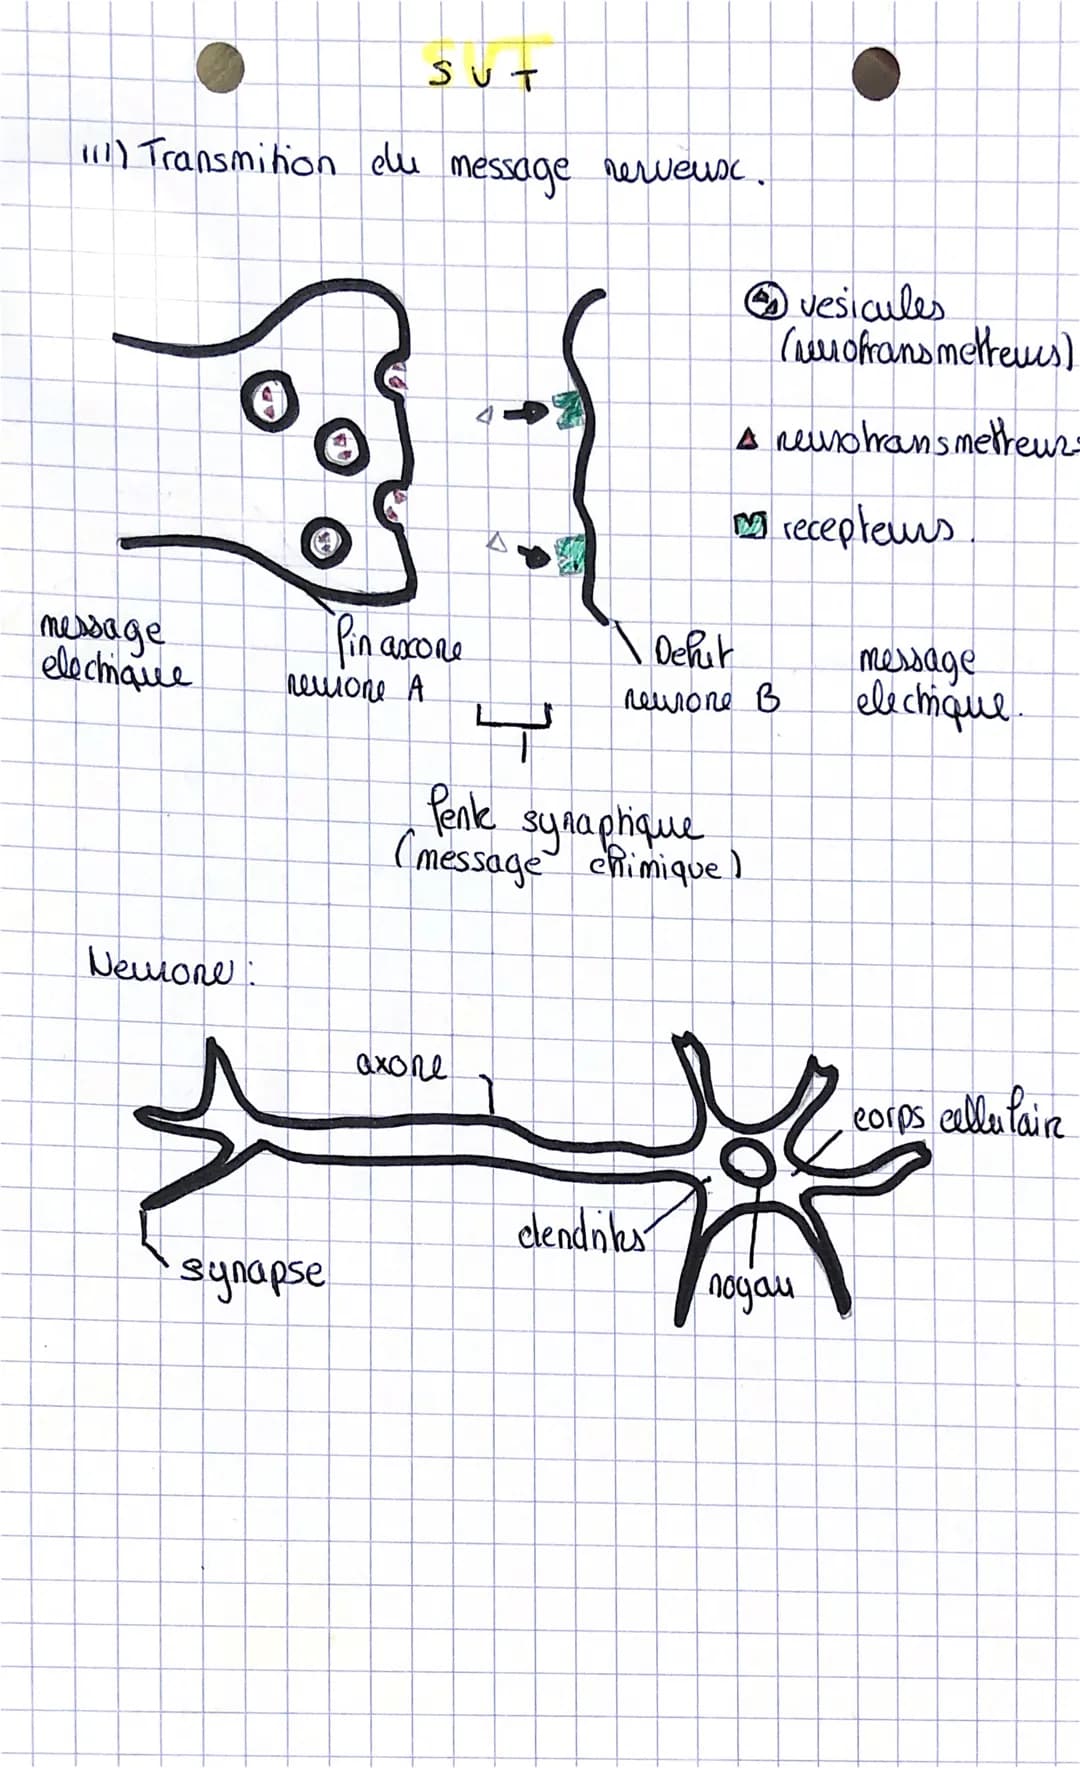 SVT
III) Transmition du message nerveux.
vesicules
(neurotransmetteurs)
neurotransmetteurs
recepteurs.
message
electrique
fin axone
neurone A
Debut
neurone B
message
electrique.
fente synaptique
(message chimique)
Neurone :
axone
corps cellulaire
dendrites
synapse
noyau